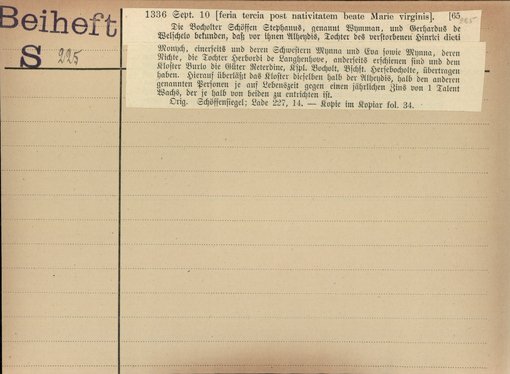 Beiheft
S 225
1336 Sept. 10 [feria tercia post nativitatem beate Marie virginis]. [65
Die Bocholter Schöffen Stephanus, genannt Wynman, und Gerhardus de
Welschelo bekunden, daß vor ihnen Alheydis, Tochter des verstorbenen Hinrici dicti
Monych, einerseits und deren Schwestern Mynna und Eva sowie Mynna, deren
Nichte, die Tochter Herbordi de Langhenhove, anderseits erschienen sind und dem
Kloster Burlo die Güter Reterdinc, Kspl. Bocholt, Bschft. Hersebocholte, übertragen
haben. Hierauf überläßt das Kloster dieselben halb der Alheydis, halb den anderen
genannten Personen je auf Lebenszeit gegen einen jährlichen Zins von 1 Talent
Wachs, der je halb von beiden zu entrichten ist.
Orig. Schöffensiegel; Lade 227, 14. — Kopie im Kopiar fol. 34.